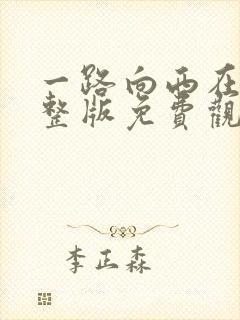 一路向西在
整版免費觀
李正森